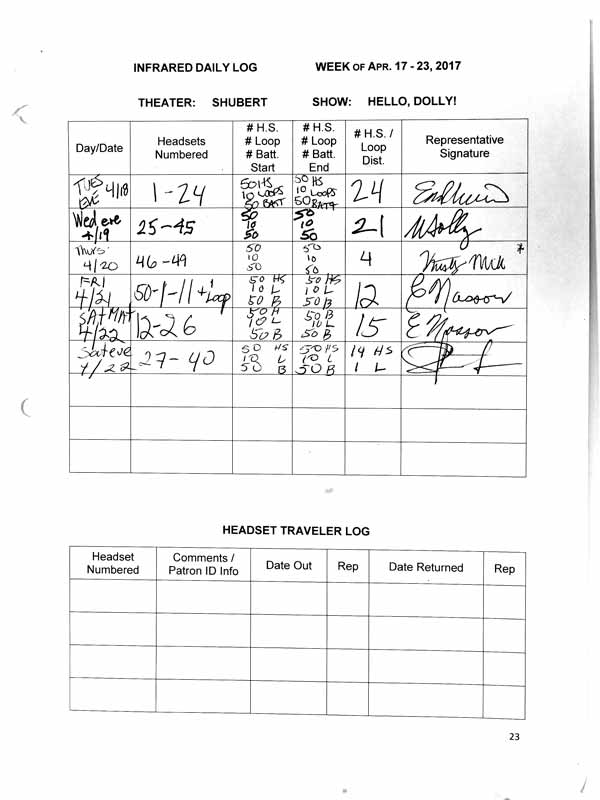 INFRARED DAILY LOG WEEK OF APR. 17 - 23, 2017
THEATER: SHUBERT SHOW: HELLO, DOLLY!
Day/Date Headsets Numbered # H.S. # Loop # Batt. Start # H.S. # Loop # Batt. End # H.S. / Loop Dist. Representative Signature
TUES EVE 4/18 1-24 50 HS 10 LOOPS 50 BATT 50 HS 10 LOOPS 50 BATT 24
Wed eve 4/19 25-45 50 10 50 50 10 50 21
Thurs 4/20 46-49 50 10 50 50 10 50 4
FRI 4/21 50-1-11 + 1 Loop 50 HS 10 L 50 B 50 HS 10 L 50 B 12 E Nasson
SAT MAT 4/22 12-26 50 H 10 L 50 B 50 B 10 L 50 B 15 E Nasson
Sat eve 4/22 27-40 50 HS 10 L 50 B 50 HS 10 L 50 B 14 HS 1 L
HEADSET TRAVELER LOG
Headset Numbered Comments / Patron ID Info Date Out Rep Date Returned Rep
23